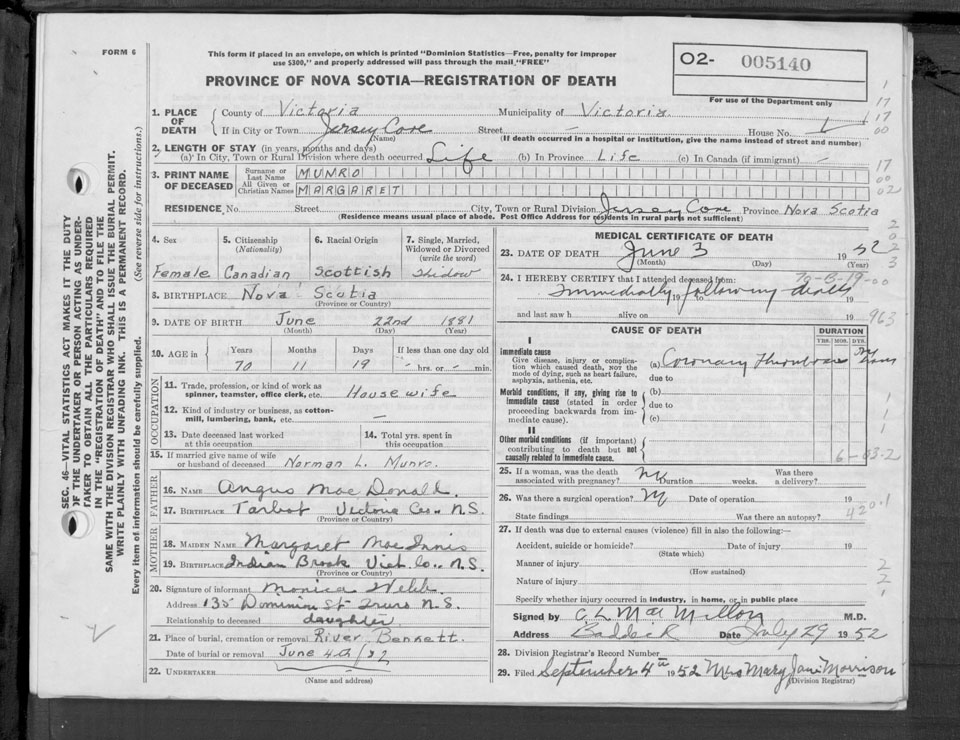 FORM 6
This form if placed in an envelope, on which is printed "Dominion Statistics—Free, penalty for improper
use $300," and properly addressed will pass through the mail "FREE"
PROVINCE OF NOVA SCOTIA—REGISTRATION OF DEATH
O2- 005140
For use of the Department only
1. PLACE OF DEATH County of Victoria Municipality of Victoria
If in City or Town Jersey Cove Street — House No.
(Name) (If death occurred in a hospital or institution, give the name instead of street and number)
2. LENGTH OF STAY (in years, months and days)
(a) In City, Town or Rural Division where death occurred Life (b) In Province Life (c) In Canada (if immigrant) —
3. PRINT NAME OF DECEASED Surname or Last Name MUNRO
All Given or Christian Names MARGARET
RESIDENCE, No. Street City, Town or Rural Division Jersey Cove Province Nova Scotia
(Residence means usual place of abode. Post Office Address for residents in rural parts not sufficient)
4. Sex 5. Citizenship (Nationality) 6. Racial Origin 7. Single, Married, Widowed or Divorced (write the word)
Female Canadian Scottish Widow
8. BIRTHPLACE Nova Scotia
(Province or Country)
9. DATE OF BIRTH June 22nd 1881
(Month) (Day) (Year)
10. AGE in Years Months Days If less than one day old
70 11 19 — hrs. or — min.
OCCUPATION
11. Trade, profession, or kind of work as spinner, teamster, office clerk, etc. Housewife
12. Kind of industry or business, as cotton-mill, lumbering, bank, etc. —
13. Date deceased last worked at this occupation 14. Total yrs. spent in this occupation
15. If married give name of wife or husband of deceased Norman L. Munro.
FATHER
16. NAME Angus MacDonald.
17. BIRTHPLACE Tarbot Victoria Co. N.S.
(Province or Country)
MOTHER
18. MAIDEN NAME Margaret MacInnis
19. BIRTHPLACE Indian Brook Vict. Co. N.S.
(Province or Country)
20. Signature of informant Monica Webb.
Address 135 Dominion St Truro N.S.
Relationship to deceased daughter
21. Place of burial, cremation or removal River Bennett.
Date of burial or removal June 4th/52
22. UNDERTAKER
(Name and address)
MEDICAL CERTIFICATE OF DEATH
23. DATE OF DEATH June 3 1952
(Month) (Day) (Year)
24. I HEREBY CERTIFY that I attended deceased from:
Immediately following death
19 to 19
and last saw h alive on 19
CAUSE OF DEATH DURATION
YRS. MOS. DYS.
I
Immediate cause
Give disease, injury or complication which caused death, NOT the mode of dying, such as heart failure, asphyxia, asthenia, etc. (a) Coronary Thrombosis
due to
Morbid conditions, if any, giving rise to immediate cause (stated in order proceeding backwards from immediate cause). (b)
due to
(c)
II
Other morbid conditions (if important) contributing to death but not causally related to immediate cause.
25. If a woman, was the death associated with pregnancy? No Duration weeks. Was there a delivery?
26. Was there a surgical operation? No Date of operation 19
State findings Was there an autopsy?
27. If death was due to external causes (violence) fill in also the following:—
Accident, suicide or homicide? Date of injury 19
(State which)
Manner of injury
(How sustained)
Nature of injury
Specify whether injury occurred in industry, in home, or in public place
Signed by C L MacMillan M.D.
Address Baddeck Date July 29 1952
28. Division Registrar's Record Number
29. Filed September 4th 1952 Mrs Mary Jane Morrison
(Division Registrar)
SEC. 46—VITAL STATISTICS ACT MAKES IT THE DUTY
OF THE UNDERTAKER OR PERSON ACTING AS UNDER-
TAKER TO OBTAIN ALL THE PARTICULARS REQUIRED
IN THE "REGISTRATION OF DEATH" AND TO FILE THE
SAME WITH THE DIVISION REGISTRAR WHO SHALL ISSUE THE BURIAL PERMIT.
WRITE PLAINLY WITH UNFADING INK. THIS IS A PERMANENT RECORD.
Every item of information should be carefully supplied. (See reverse side for instructions.)